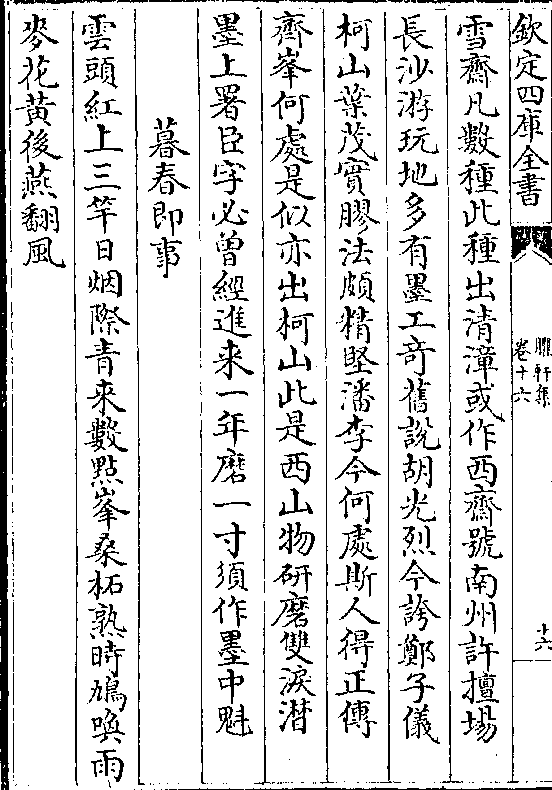 欽定四庫全書
臞軒集
卷十六
十六
雪齋凡數種此種出清漳或作西齋號南州許擅場
長沙游玩地多有墨工奇舊説胡光烈今誇鄭子儀
柯山葉茂實膠法頗精堅潘李今何處斯人得正傳
齊峯何處是似亦出柯山此是西山物研磨雙淚潸
墨上署臣字必曾經進来一年磨一寸須作墨中魁
暮春即事
雲頭紅上三竿日烟際青来數點峯桑柘熟時鳩喚雨
麥花黃後燕翻風